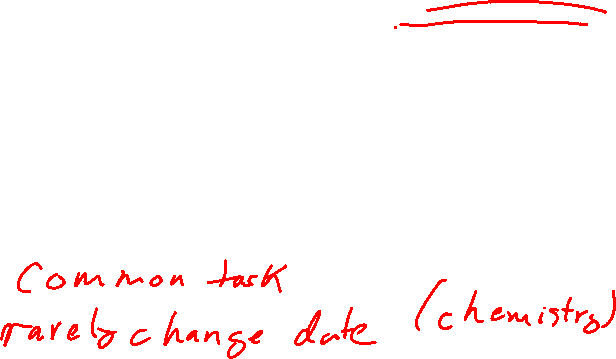 Common task
rarely change date (chemistry)